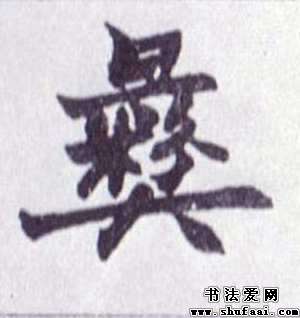 彝
书法爱网
www.shufaai.com